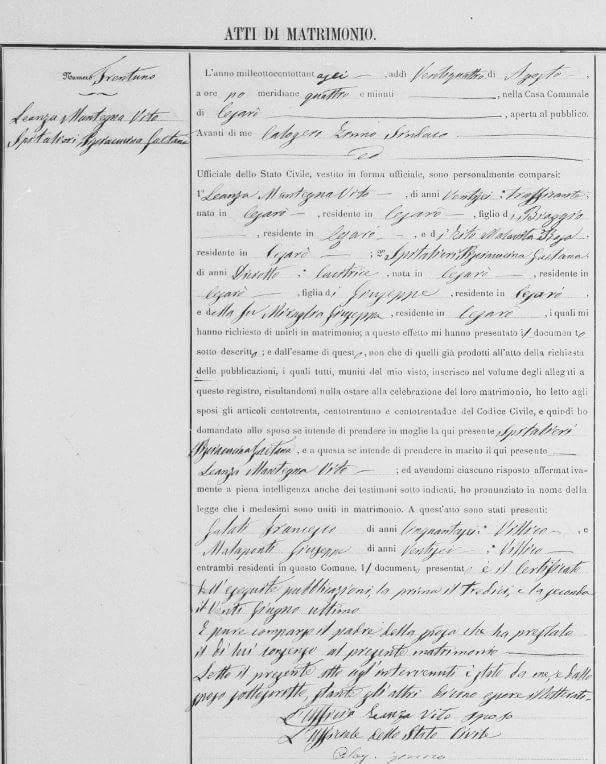 ATTI DI MATRIMONIO.
Numero Trentuno
Leanza Mantegna Vito
Spitaleri Gaetana
L'anno milleottocentottantasei, addì Ventiquattro di Agosto,
a ore po meridiane quattro e minuti, nella Casa Comunale
di Cesarò, aperta al pubblico.
Avanti di me Calogero Zenno Sindaco
ed
Ufficiale dello Stato Civile, vestito in forma ufficiale, sono personalmente comparsi:
1° Leanza Mantegna Vito, di anni Ventisei: trafficante
nato in Cesarò, residente in Cesarò, figlio di Biaggio
, residente in Cesarò, e di Vito
residente in Cesarò; 2° Spitaleri Gaetana
di anni Diciotto: , nata in Cesarò, residente in
Cesarò, figlia di Giuseppe, residente in Cesarò
e della fu Giuseppa, residente in Cesarò, i quali mi
hanno richiesto di unirli in matrimonio; a questo effetto mi hanno presentato il documento
sotto descritto; e dall'esame di questo, non che di quelli già prodotti all'atto della richiesta
delle pubblicazioni, i quali tutti, muniti del mio visto, inserisco nel volume degli allegati a
questo registro, risultandomi nulla ostare alla celebrazione del loro matrimonio, ho letto agli
sposi gli articoli centotrenta, centotrentuno e centotrentadue del Codice Civile, e quindi ho
domandato allo sposo se intende di prendere in moglie la qui presente Spitaleri
Gaetana, e a questa se intende di prendere in marito il qui presente
Leanza Mantegna Vito; ed avendomi ciascuno risposto affermativa-
mente a piena intelligenza anche dei testimoni sotto indicati, ho pronunziato in nome della
legge che i medesimi sono uniti in matrimonio. A quest'atto sono stati presenti:
Galati Francesco di anni Cinquantasei: Villico, e
Malaponti Giuseppe di anni Ventisei: Villico
entrambi residenti in questo Comune. Il documento presentato è il Certificato
dell'eseguite pubblicazioni, la prima il tredici, e la seconda
il Venti Giugno ultimo
È pure comparso il padre della sposa che ha prestato
il di lui consenso al presente matrimonio
Letto il presente atto agl'intervenuti è stato da me, e dallo
sposo sottoscritto, stante gli altri essere illetterati
Leanza Vito sposo
L'Uffiziale dello Stato Civile